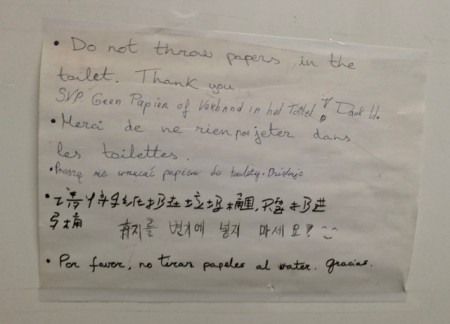 • Do not throw papers in the
toilet. Thank you
SVP Geen Papier of Verband in het Toilet ! Dank U.
• Merci de ne rien pa jeter dans
les toilettes.
• Proszę nie wrzucać papieru do toalety. Dziękuję
• 请 卫生纸扔在垃圾桶 扔进
马桶
휴지를 변기에 넣지 마세요!
• Por favor, no tirar papeles al water. Gracias.